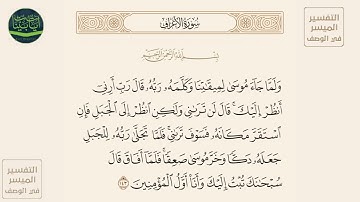 التفسير
الميسر
في الوصف
سُورَةُ الأَعْرَافِ
بِسْمِ اللَّهِ الرَّحْمَٰنِ الرَّحِيمِ
وَلَمَّا جَآءَ مُوسَىٰ لِمِيقَٰتِنَا وَكَلَّمَهُۥ رَبُّهُۥ قَالَ رَبِّ أَرِنِيٓ
أَنظُرْ إِلَيْكَۚ قَالَ لَن تَرَىٰنِي وَلَٰكِنِ ٱنظُرْ إِلَى ٱلْجَبَلِ فَإِنِ
ٱسْتَقَرَّ مَكَانَهُۥ فَسَوْفَ تَرَىٰنِيۚ فَلَمَّا تَجَلَّىٰ رَبُّهُۥ لِلْجَبَلِ
جَعَلَهُۥ دَكًّا وَخَرَّ مُوسَىٰ صَعِقًاۚ فَلَمَّآ أَفَاقَ قَالَ
سُبْحَٰنَكَ تُبْتُ إِلَيْكَ وَأَنَا۠ أَوَّلُ ٱلْمُؤْمِنِينَ ١٤٣
التفسير
الميسر
في الوصف